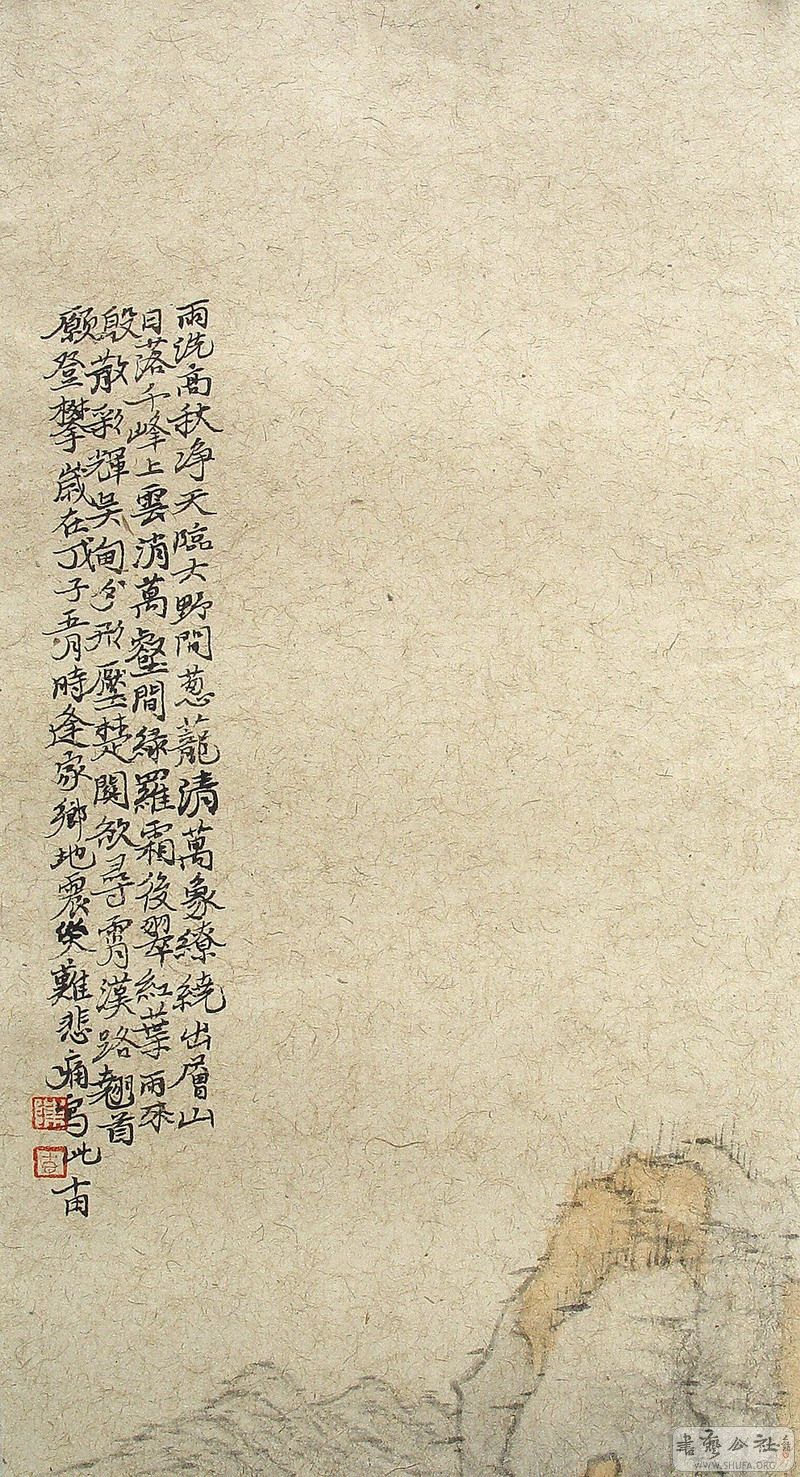 雨洗高秋净天臨大野間葱蘢清萬象繚繞出層山
日落千峰上雲消萬壑間緑羅霜後翠紅葉雨來
殷散彩輝吴甸分形壓楚關欲尋霄漢路翹首
願登攀歲在戊子五月時逢家鄉地震災難悲痛寫此
書藝公社
WWW.SHUFA.ORG